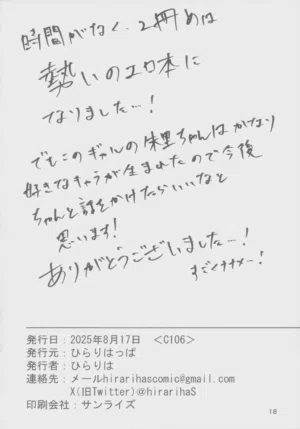 時間がなく、2冊めは
勢いのエロ本に
なりました…!
でもこのギャルの朱里ちゃんはかなり
好きなキャラが生まれたので今後
ちゃんと話をかけたらいいなと
思います!
ありがとうございました…!
発行日:2025年8月17日 <C106>
発行元:ひらりはっぱ
発行者:ひらりは
連絡先:メールhirarihascomic@gmail.com
X(旧Twitter)@hirarihaS
印刷会社:サンライズ
18